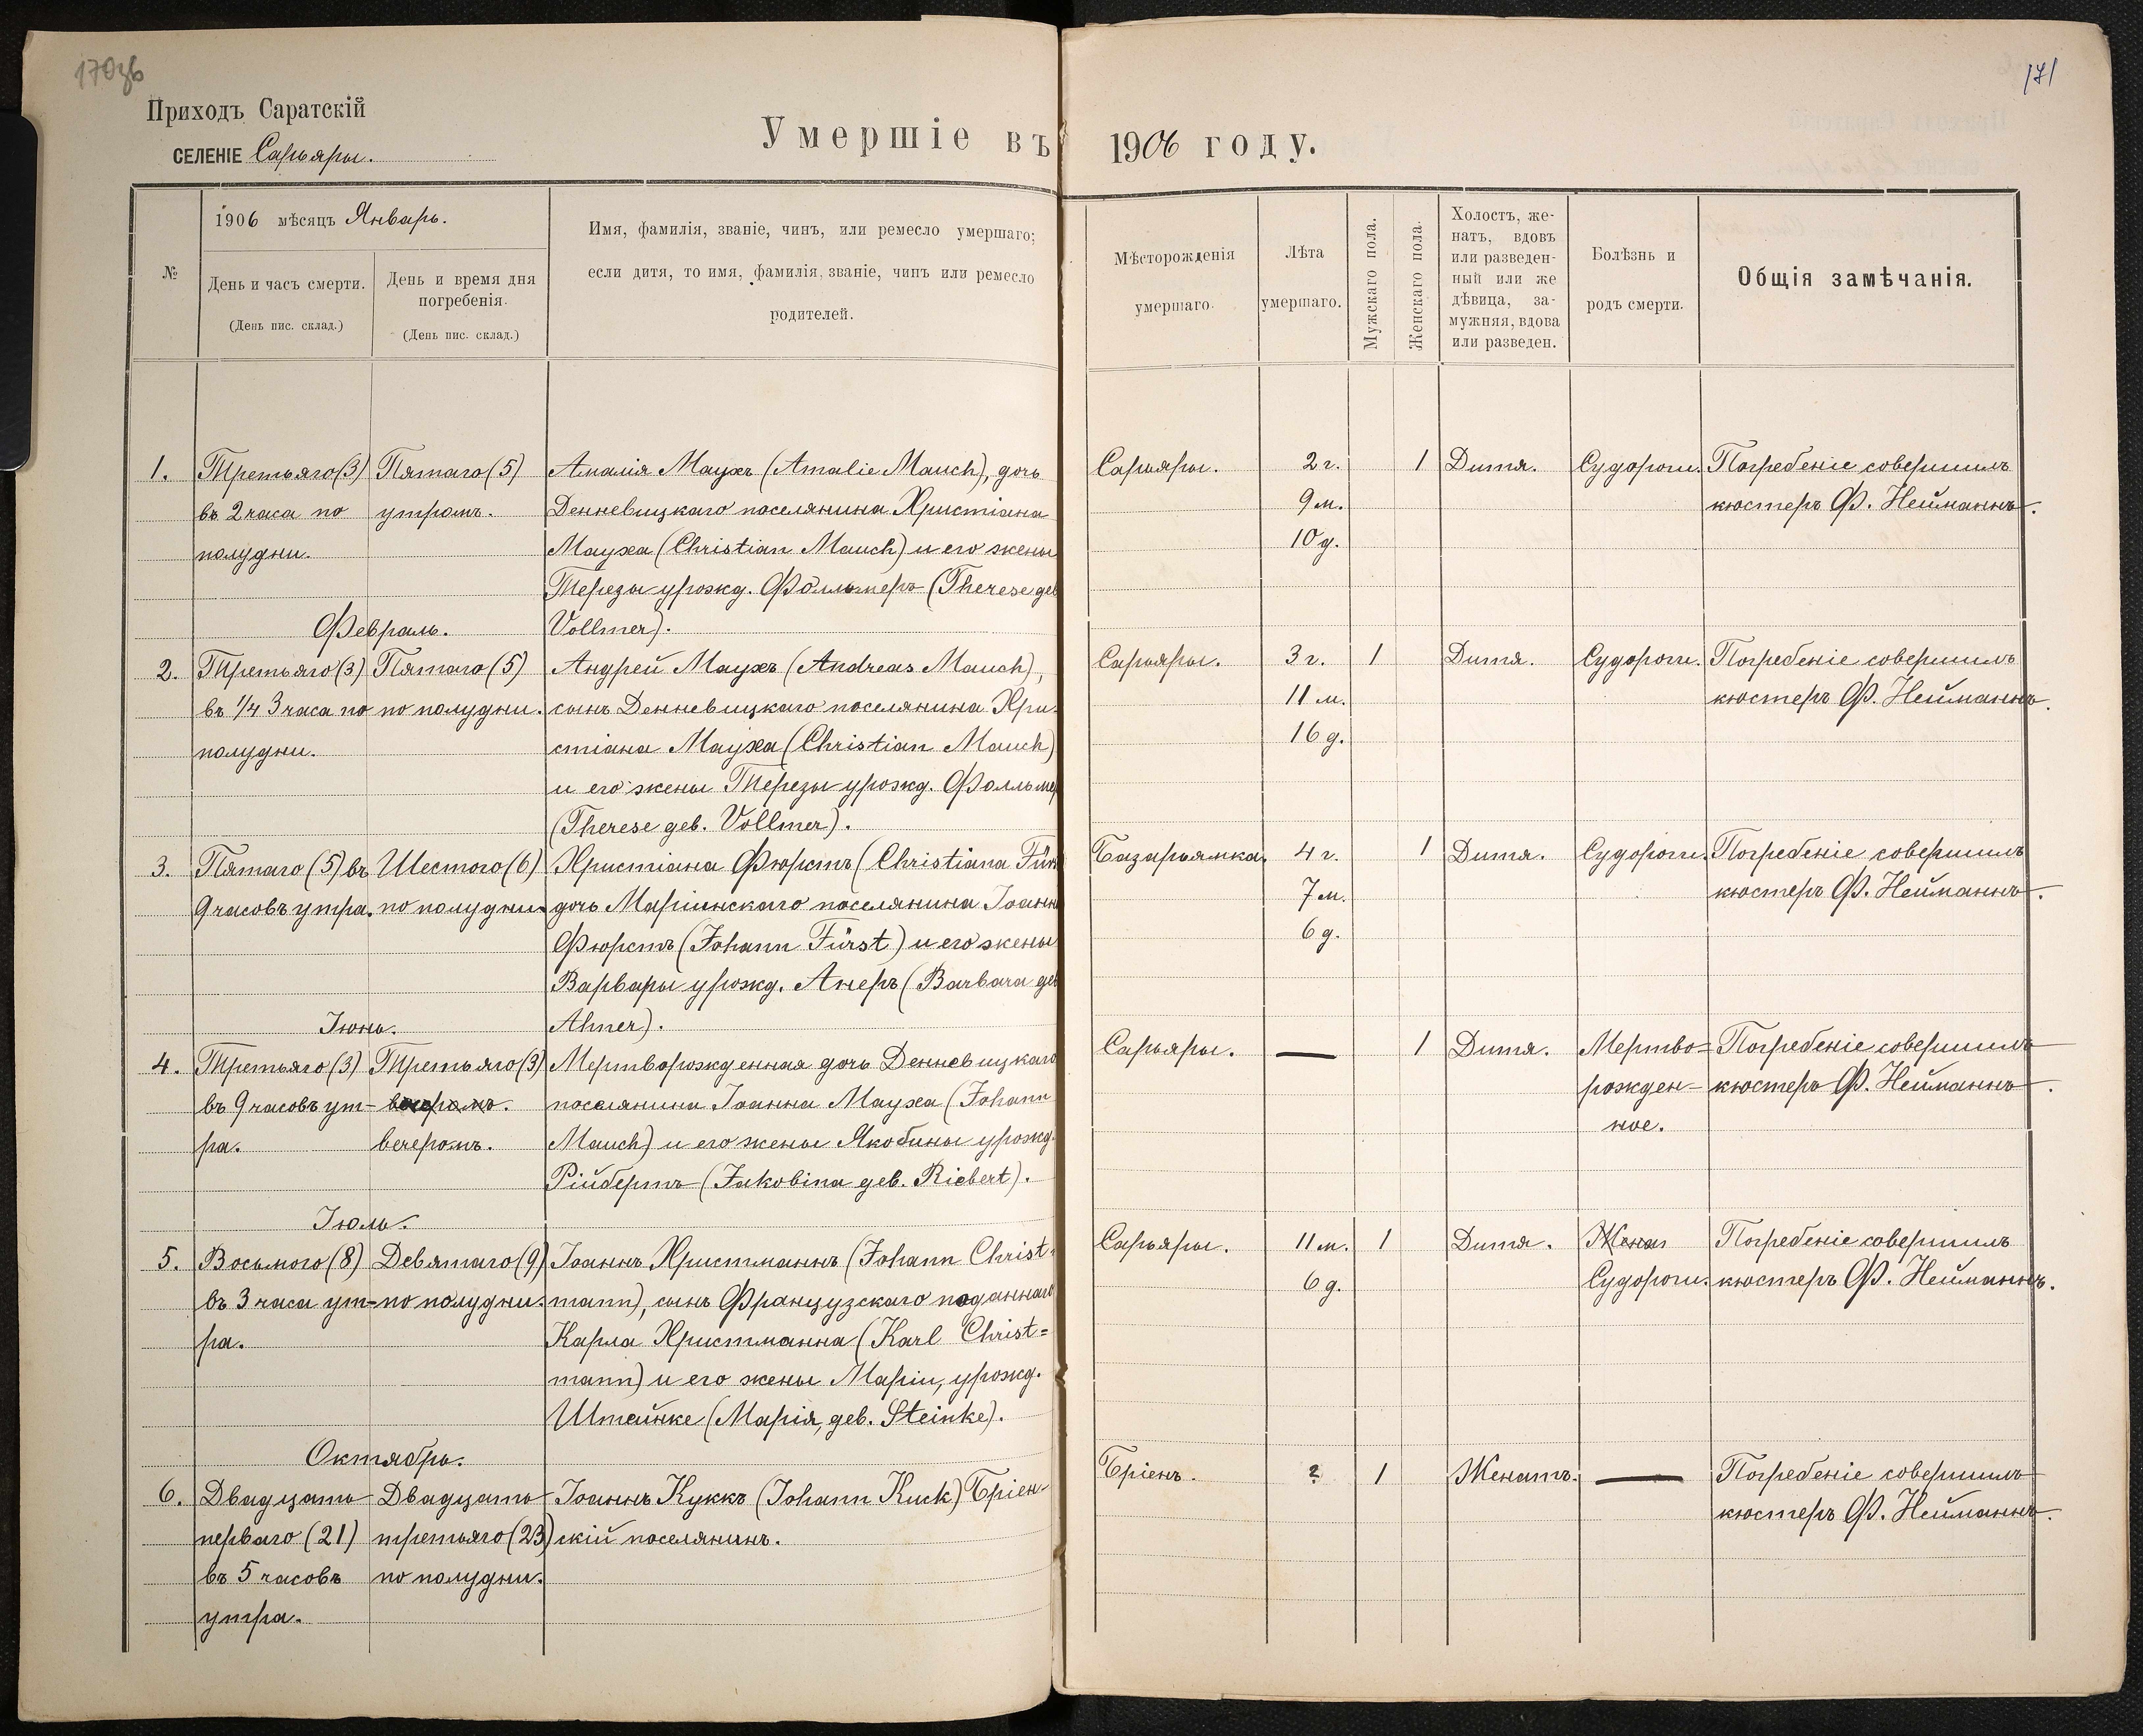 170зв
171
Приходъ Саратскій
СЕЛЕНІЕ Сарьяры.
Умершіе въ 1906 году.
№
1906 мѣсяцъ Январь.
День и часъ смерти.
(День пис. склад.)
День и время дня
погребенія.
(День пис. склад.)
Имя, фамилія, званіе, чинъ, или ремесло умершаго;
если дитя, то имя, фамилія, званіе, чинъ или ремесло
родителей.
Мѣсторожденія
умершаго.
Лѣта
умершаго.
Мужскаго пола.
Женскаго пола.
Холостъ, же-
натъ, вдовъ
или разведен-
ный или же
дѣвица, за-
мужняя, вдова
или разведен.
Болѣзнь и
родъ смерти.
Общія замѣчанія.
1.
Третьяго (3)
въ 2 часа по
полудни.
Пятаго (5)
утромъ.
Амалія Маухъ (Amalie Mauch), дочь
Денневицкаго поселянина Христіана
Мауха (Christian Mauch) и его жены
Терезы урожд. Фолльмеръ (Therese geb
Vollmer).
Сарьяры.
2 г.
9 м.
10 д.
1
Дитя.
Судороги.
Погребеніе совершилъ
кюстеръ Ф. Нейманнъ.
Февраль.
2.
Третьяго (3)
въ 1/4 3 часа по
полудни.
Пятаго (5)
по полудни.
Андрей Маухъ (Andreas Mauch),
сынъ Денневицкаго поселянина Хри-
стіана Мауха (Christian Mauch)
и его жены Терезы урожд. Фолльмер
(Therese geb. Vollmer).
Сарьяры.
3 г.
11 м.
16 д.
1
Дитя.
Судороги.
Погребеніе совершилъ
кюстеръ Ф. Нейманнъ.
3.
Пятаго (5) въ
9 часовъ утра.
Шестого (6)
по полудни.
Христіана Фюрстъ (Christiana Für
дочь Маріинскаго поселянина Іоанн
Фюрстъ (Johann Fürst) и его жены
Варвары урожд. Анеръ (Barbara geb
Ahner).
Базарьямка.
4 г.
7 м.
6 д.
1
Дитя.
Судороги.
Погребеніе совершилъ
кюстеръ Ф. Нейманнъ.
Іюнь.
4.
Третьяго (3)
въ 9 часовъ ут-
ра.
Третьяго (3)
вечеромъ.
Мертворожденная дочь Денневицкаго
поселянина Іоанна Мауха (Johann
Mauch) и его жены Якобины урожд.
Рійбертъ (Jakobina geb. Riebert).
Сарьяры.
—
1
Дитя.
Мертво=
рожден-
ное.
Погребеніе совершилъ
кюстеръ Ф. Нейманнъ.
Іюль.
5.
Восьмого (8)
въ 3 часа ут=
ра.
Девятаго (9)
по полудни.
Іоаннъ Христманнъ (Johann Christ=
mann), сынъ Французскаго поданнаго
Карла Христманна (Karl Christ=
mann) и его жены Маріи, урожд.
Штейнке (Марія, geb. Steinke).
Сарьяры.
11 м.
6 д.
1
Дитя.
Женат
Судороги.
Погребеніе совершилъ
кюстеръ Ф. Нейманнъ.
Октябрь.
6.
Двадцать
перваго (21)
въ 5 часовъ
утра.
Двадцать
третьяго (23)
по полудни.
Іоаннъ Куккъ (Johann Kuck) Бріен-
скій поселянинъ.
Бріенъ.
?
1
Женатъ.
—
Погребеніе совершилъ
кюстеръ Ф. Нейманнъ.